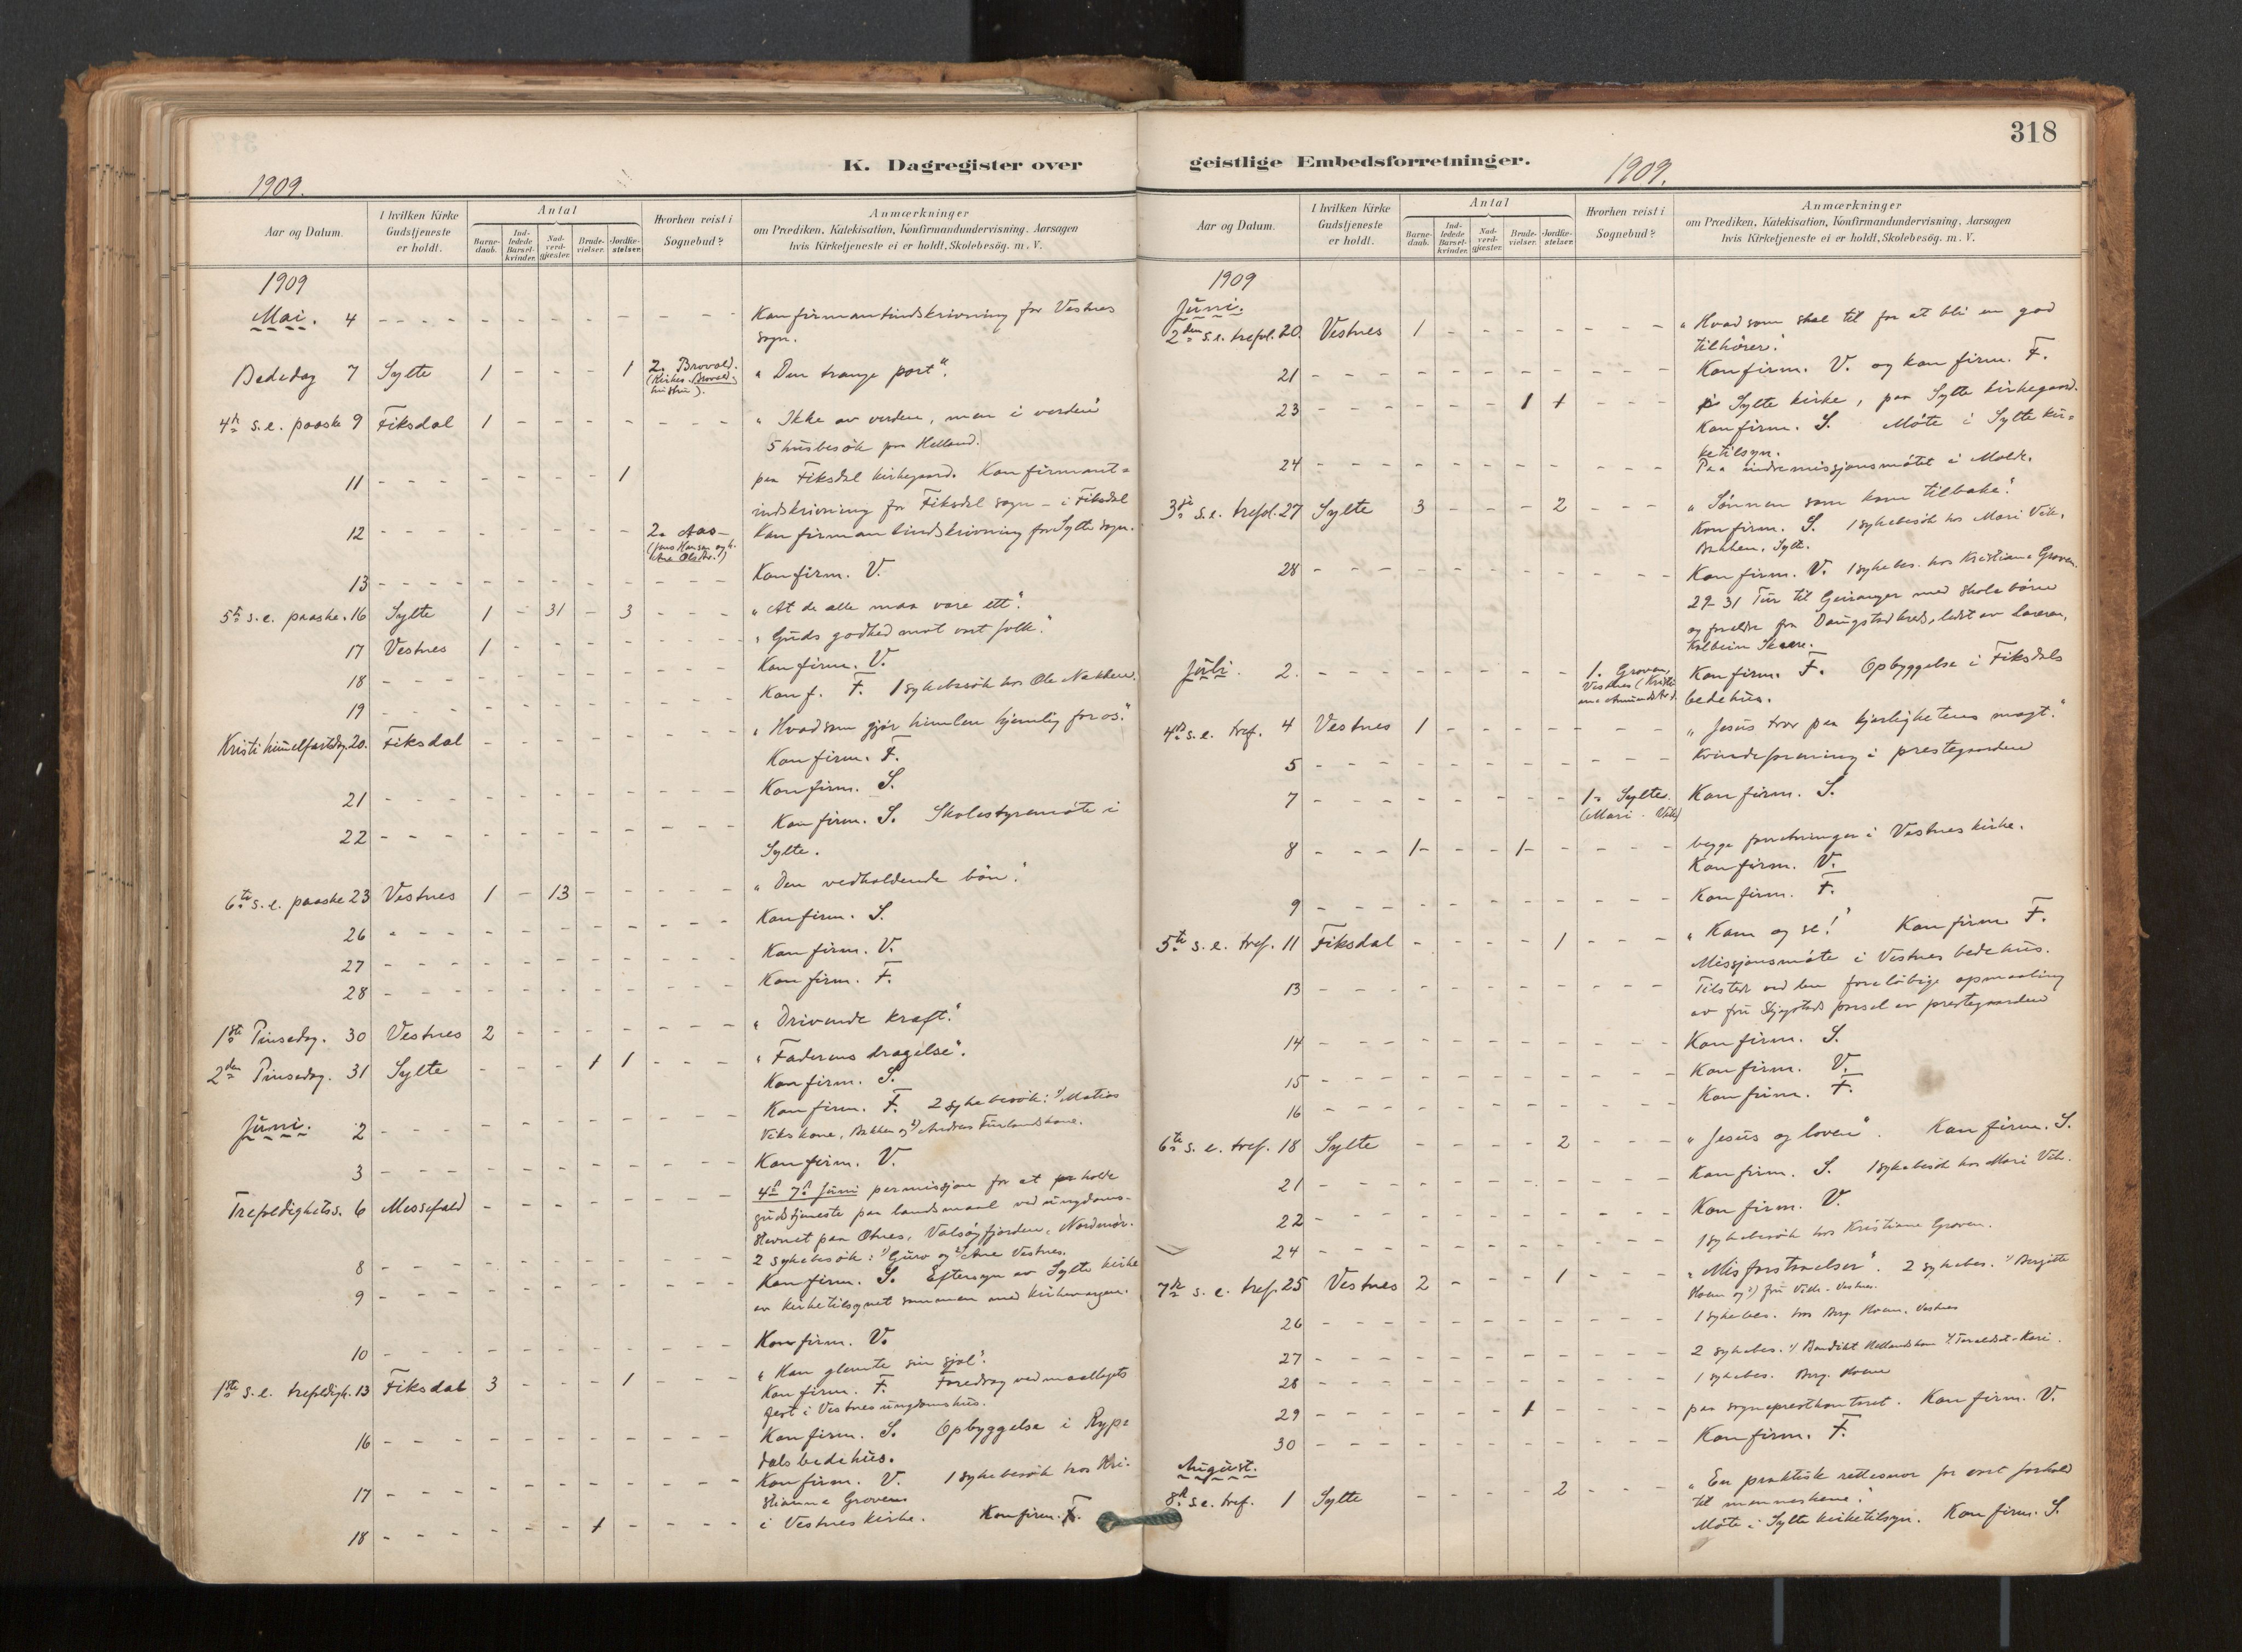 K. Dagregister over
1909.
Aar og Datum.
I hvilken Kirke Gudstjeneste er holdt.
Antal
Barne-daab.
Ind-ledede Barsel-kvinder.
Nad-verd-gjæster.
Brude-vielser.
Jordfæ-stelser.
Hvorhen reist i Sognebud?
Anmærkninger
om Prædiken, Katekisation, Konfirmandundervisning. Aarsagen
hvis Kirketjeneste ei er holdt, Skolebesög. m. V.
1909
Mai. 4 - - - - - - - - - - Konfirmantindskrivning for Vestnes
sogn.
Bededag 7 Sylte 1 - - - 1 2. Brovold. "Den trange port".
(Kirkes. Brovold, hustru).
4de s.e. paaske 9 Fiksdal 1 - - - - - - - "Ikke av verden, men i verden"
5 husbesök paa Helland.
11 - - - - - - - - 1 paa Fiksdal kirkegaard. Konfirmant-
indskrivning for Fiksdal sogn - i Fiksdal
12 - - - - - - - - - 2. Aas - Konfirmantindskrivning for Sylte sogn.
(Jens Hansen og h.
13 - - - - - - - - - - Konfirm. V.
5te s.e. paaske. 16 Sylte 1 - 31 - 3 - - - "At de alle maa være ett".
17 Vestnes 1 - - - - - - - "Guds godhed mot vort folk."
18 - - - - - - - - - - Konfirm. V.
19 - - - - - - - - - - Konf. F. 1 sykebesök hos Ole Nakken.
Kristi himmelfartsdag 20. Fiksdal - - - - - - - - "Hvad som gjør himlen hjemlig for os."
Konfirm. F.
21 - - - - - - - - - - Konfirm. S.
22 - - - - - - - - - - Konfirm. S. Skolestyremöte i
Sylte.
6te s.e. paaske 23 Vestnes 1 - 13 - - - - - "Den vedholdende bön".
26 - - - - - - - - - - Konfirm. S.
27 - - - - - - - - - - Konfirm. V.
28 - - - - - - - - - - Konfirm. F.
1ste Pinsedag. 30 Vestnes 2 - - - - - - - "Drivende kraft".
2den Pinsedag. 31 Sylte - - - 1 1 - - - "Faderens dragelse".
Konfirm. S.
Juni. 2 - - - - - - - - - - Konfirm. F. 2 sykebesök: 1) Matias
Vikskone, Bakken og 2) Andreas Furlandskone.
3 - - - - - - - - - - Konfirm. V.
Trefoldighetss. 6 Messefald - - - - 4de 7de Juni permission for at holde
gudstjeneste paa landsmaal ved ungdoms-
stevnet paa Otnes, Valsöyfjorden, Nordmör.
8 - - - - - - - - - - 2 sykebesök: 1) Guro og 2) Ane Vestnes.
9 - - - - - - - - - - Konfirm. S. Eftersyn av Sylte kirke
av kirketilsynet sammen med kirkevergen.
10 - - - - - - - - - - Konfirm. V.
1ste s.e. trefoldigh. 13 Fiksdal 3 - - - 1 - - - "Han glemte sin sjæl".
Konfirm. F. Foredrag ved maallagets
fest i Vestnes ungdomshus.
16 - - - - - - - - - - Konfirm. S. Opbyggelse i Ryp-
dals bedehus.
17 - - - - - - - - - - Konfirm. V. 1 sykebesök hos Kri-
stianne Groven
18 - - - - - - 1 - - - i Vestnes kirke. Konfirm. F.
318
geistlige Embedsforretninger.
1909.
Aar og Datum.
I hvilken Kirke Gudstjeneste er holdt.
Antal
Barne-daab.
Ind-ledede Barsel-kvinder.
Nad-verd-gjæster.
Brude-vielser.
Jordfæ-stelser.
Hvorhen reist i Sognebud?
Anmærkninger
om Prædiken, Katekisation, Konfirmandundervisning. Aarsagen
hvis Kirketjeneste ei er holdt, Skolebesög. m. V.
1909
Juni.
2den s.e. trefol. 20. Vestnes 1 - - - - - - - "Hvad som skal til for at bli en god
tilhörer".
21 - - - - - - - - - - Konfirm. V. og konfirm. F.
23 - - - - - - 1 1 - - - Sylte kirke, paa Sylte kirkegaard.
Konfirm. S. Möte i Sylte kir-
ketilsyn.
24 - - - - - - - - - - Paa indremissjonsmötet i Molde.
3die s.e. trefol. 27 Sylte 3 - - - 2 - - - "Sönnen som kom tilbake".
Konfirm. S. 1 sykebesök hos Mari Vik,
Bakken, Sylte.
28 - - - - - - - - - - Konfirm. V. 1 sykebes. hos Kristiane Groven.
29-31 Tur til Geiranger med skolebörn
og foreldre fra Daugstad kreds, ledet av læreren,
Kolbein Skaare.
Juli. 2. - - - - - - - - - 1. Groven, Konfirm. F. Opbyggelse i Fiksdals
Vestnes bedehus.
4de s.e. tref. 4 Vestnes 1 - - - - - - - "Jesus tror paa kjærlighetens magt."
5 - - - - - - - - - - Kvindeforening i prestegaarden
7 - - - - - - - - - 1. Sylte. Konfirm. S.
(Mari Vik)
8 - - - 1 - - 1 - - - - begge forretninger i Vestnes kirke.
Konfirm. V.
9 - - - - - - - - - - Konfirm. F.
5te s.e. tref. 11 Fiksdal - - - - 1 - - - "Kom og se!" Konfirm. F.
Missjonsmöte i Vestnes bedehus.
13 - - - - - - - - - - Tilstede ved den forelöbige opmaaling
av fru parsel av prestegaarden
14 - - - - - - - - - - Konfirm. S.
15 - - - - - - - - - - Konfirm. V.
16 - - - - - - - - - - Konfirm. F.
6te s.e. tref. 18 Sylte - - - - 2 - - - "Jesus og loven". Konfirm. S.
21 - - - - - - - - - - Konfirm. S. 1 sykebesök hos Mari Vik.
22 - - - - - - - - - - Konfirm. V.
24 - - - - - - - - - - 1 sykebesök hos Kristiane Groven.
7de s.e. tref. 25 Vestnes 2 - - - 1 - - - "Misforstaaelser". 2 sykebes. 1) Bergitte
Hoem og 2) fru Vik. Vestnes.
26 - - - - - - - - - - 1 sykebes. hos Berg. Hoem. Vestnes
27 - - - - - - - - - - 2 sykebes. 1) Bendikt Hellandskone
28 - - - - - - - - - - 1 sykebes. Berg. Hoem
29 - - - - - - 1 - - - paa sogneprestkontoret. Konfirm. V.
30 - - - - - - - - - - Konfirm. F.
August.
8de s.e. tref. 1 Sylte - - - - 2 - - - "En praktisk rettesnor for vort forhold
til menneskene".
Möte i Sylte kirketilsyn. Konfirm. S.